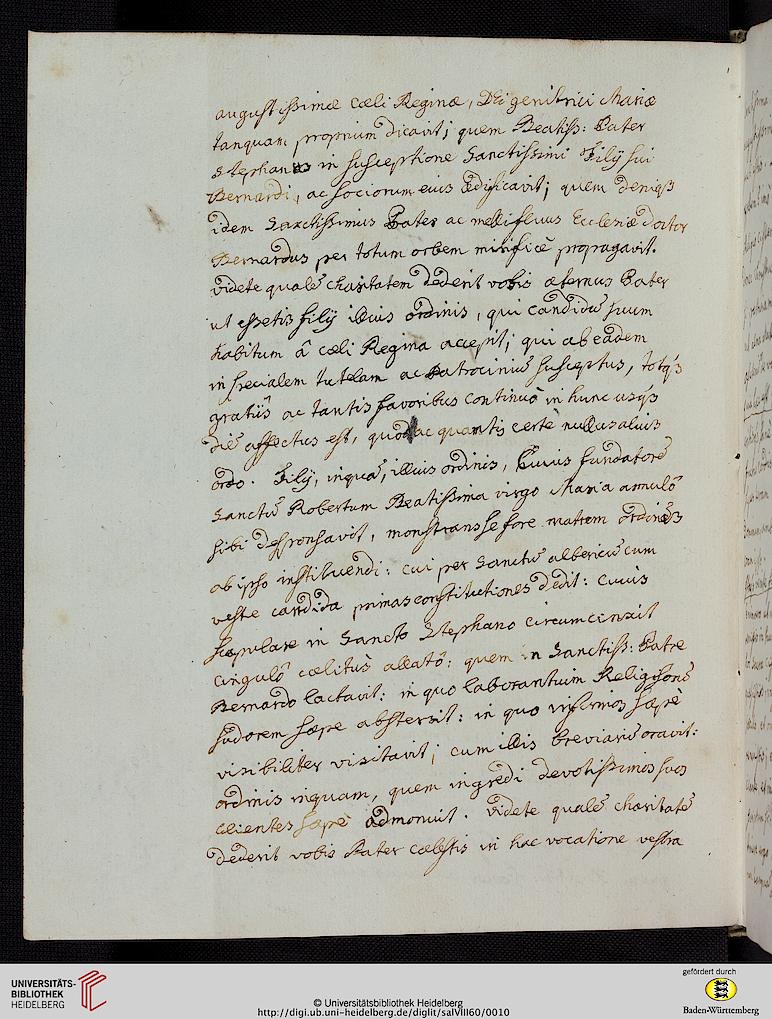 augustissimæ cæli Reginæ, Dei genitrici Mariæ
tanquam proprium dicavit; quem Beatiss: Pater
Stephanus in susceptione Sanctissimi Filij sui
Bernardi, ac sociorum eius ædificavit; quem deniqs
idem Sanctissimus Pater ac mellifluus Ecclesiæ doctor
Bernardus per totum orbem mirificè propagavit.
Videte qualē charitatem dederit vobis æternus Pater
ut essetis filij illius ordinis, qui candidū suum
habitum â cæli Regina accepit; qui ab eadem
in specialem tutelam ac Patrociniū susceptus, totqs
gratiis ac tantis favoribus continuò in hunc usqs
diē affectus est, quot ac quantis certè nullus alius
ordo. Filij, inquā, illius ordinis, Cuius fundatorē
Sanctū Robertum Beatissima virgo Maria annulō
sibi desponsavit, monstrans se fore matrem ordinis
ab ipso instituendi: cui per Sanctū Albericū cum
veste candida primas constitutiones dedit: cuius
scapulare in Sancto Stephano circumcinxit
cingulō cælitùs allatō: quem in Sanctiss: Patre
Bernardo lactavit: in quo laborantium Religiosorū
sudorem sæpe abstersit: in quo infirmos sæpè
visibiliter visitavit; cum illis breviariū oravit:
ordinis inquam, quem ingredi devotissimos suos
clientes sæpè admonuit. Videte qualē charitatē
dederit vobis Pater cælestis in hac vocatione vestra
UNIVERSITÄTS-
BIBLIOTHEK
HEIDELBERG
© Universitätsbibliothek Heidelberg
http://digi.ub.uni-heidelberg.de/diglit/salVIII60/0010
gefördert durch
Baden-Württemberg